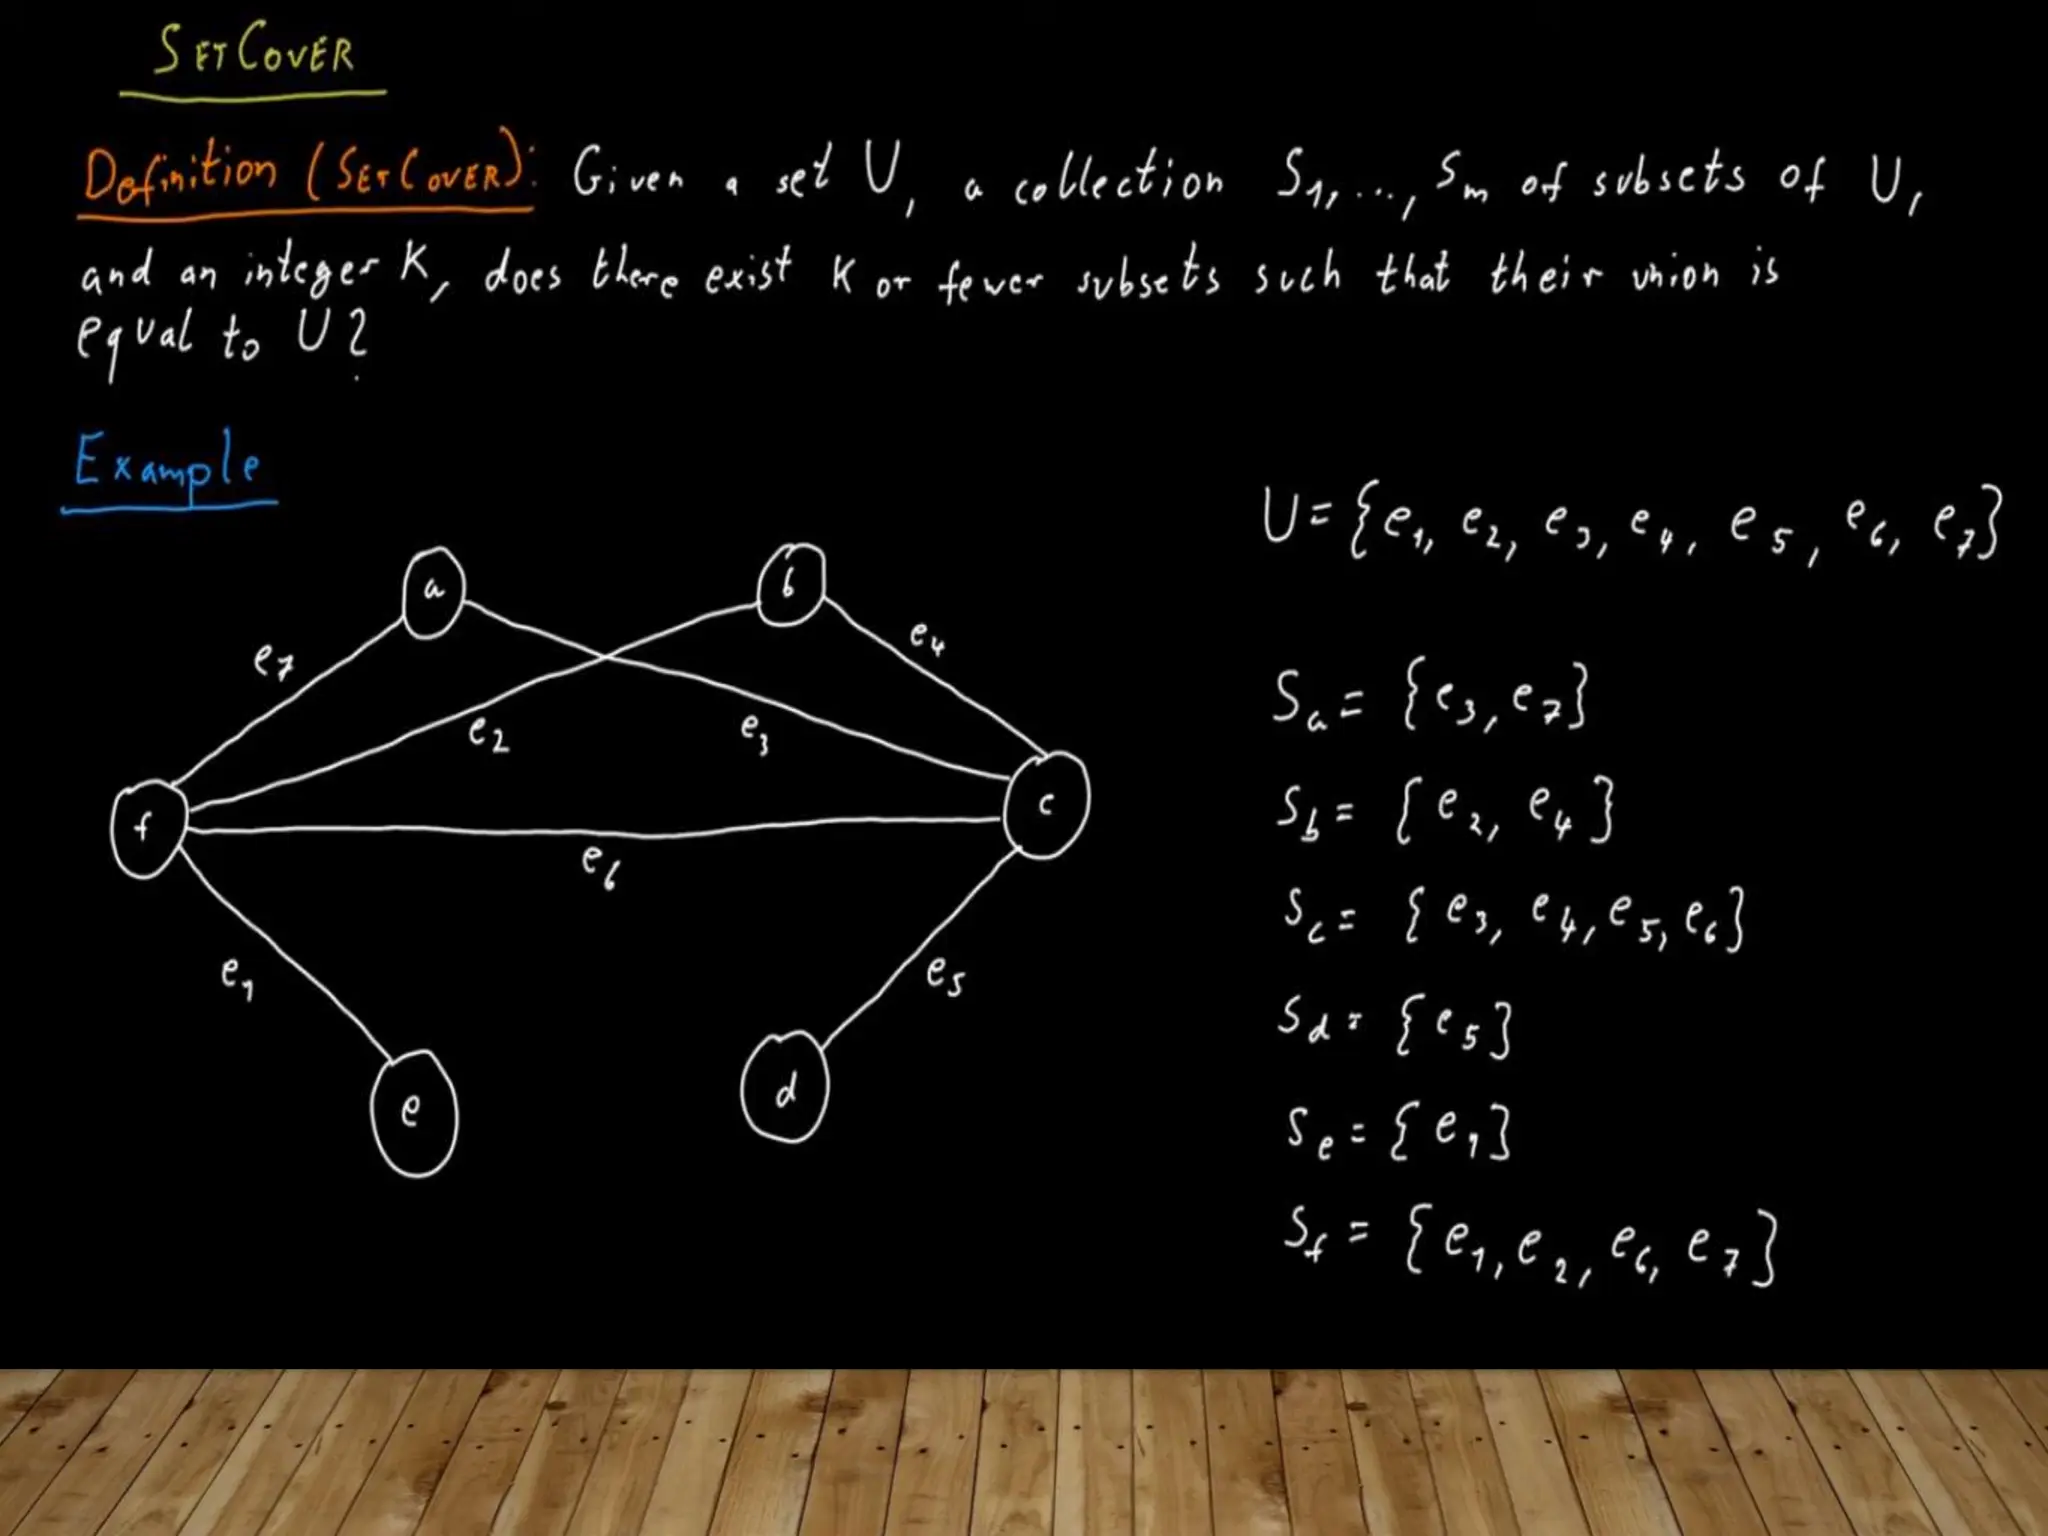 SETCOVER
Definition (SETCOVER): Given a set U, a collection S1,..., Sm of subsets of U,
and an integer K, does there exist K or fewer subsets such that their union is
equal to U?
Example
U={e1, e2, e3, e4, e5, e6, e7}
a
b
e7
e4
Sa = {e3, e7}
e2
e3
Sb = {e2, e4}
f
c
e6
Sc = {e3, e4, e5, e6}
e1
e5
Sd = {e5}
e
d
Se = {e1}
Sf = {e1, e2, e6, e7}